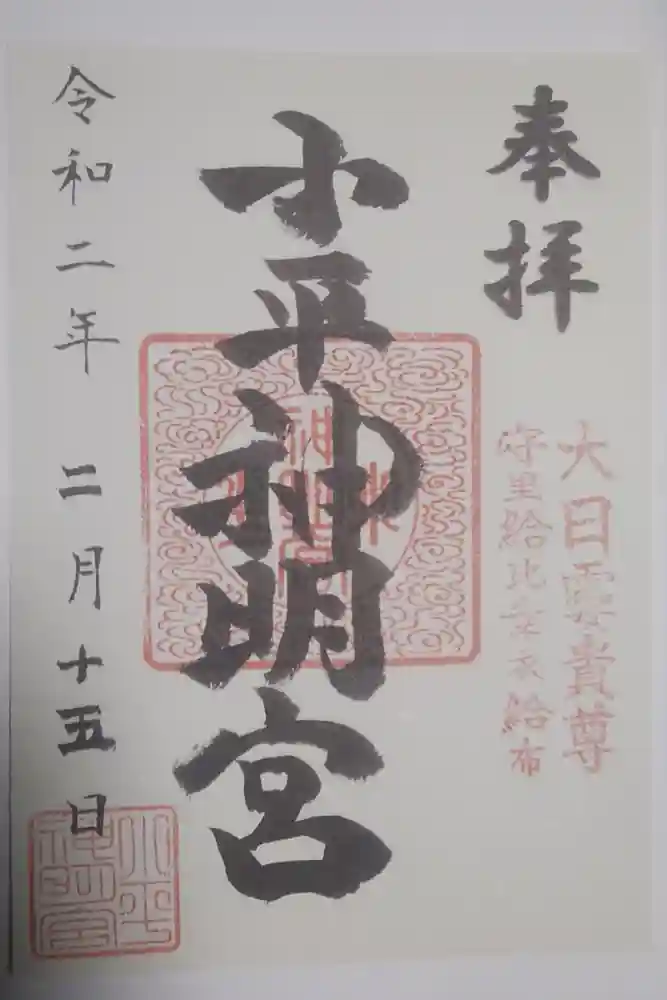 奉拝
大日霊貴尊
守里給比幸衣給布
小平神明宮
令和二年 二月十五日
小平
神明宮